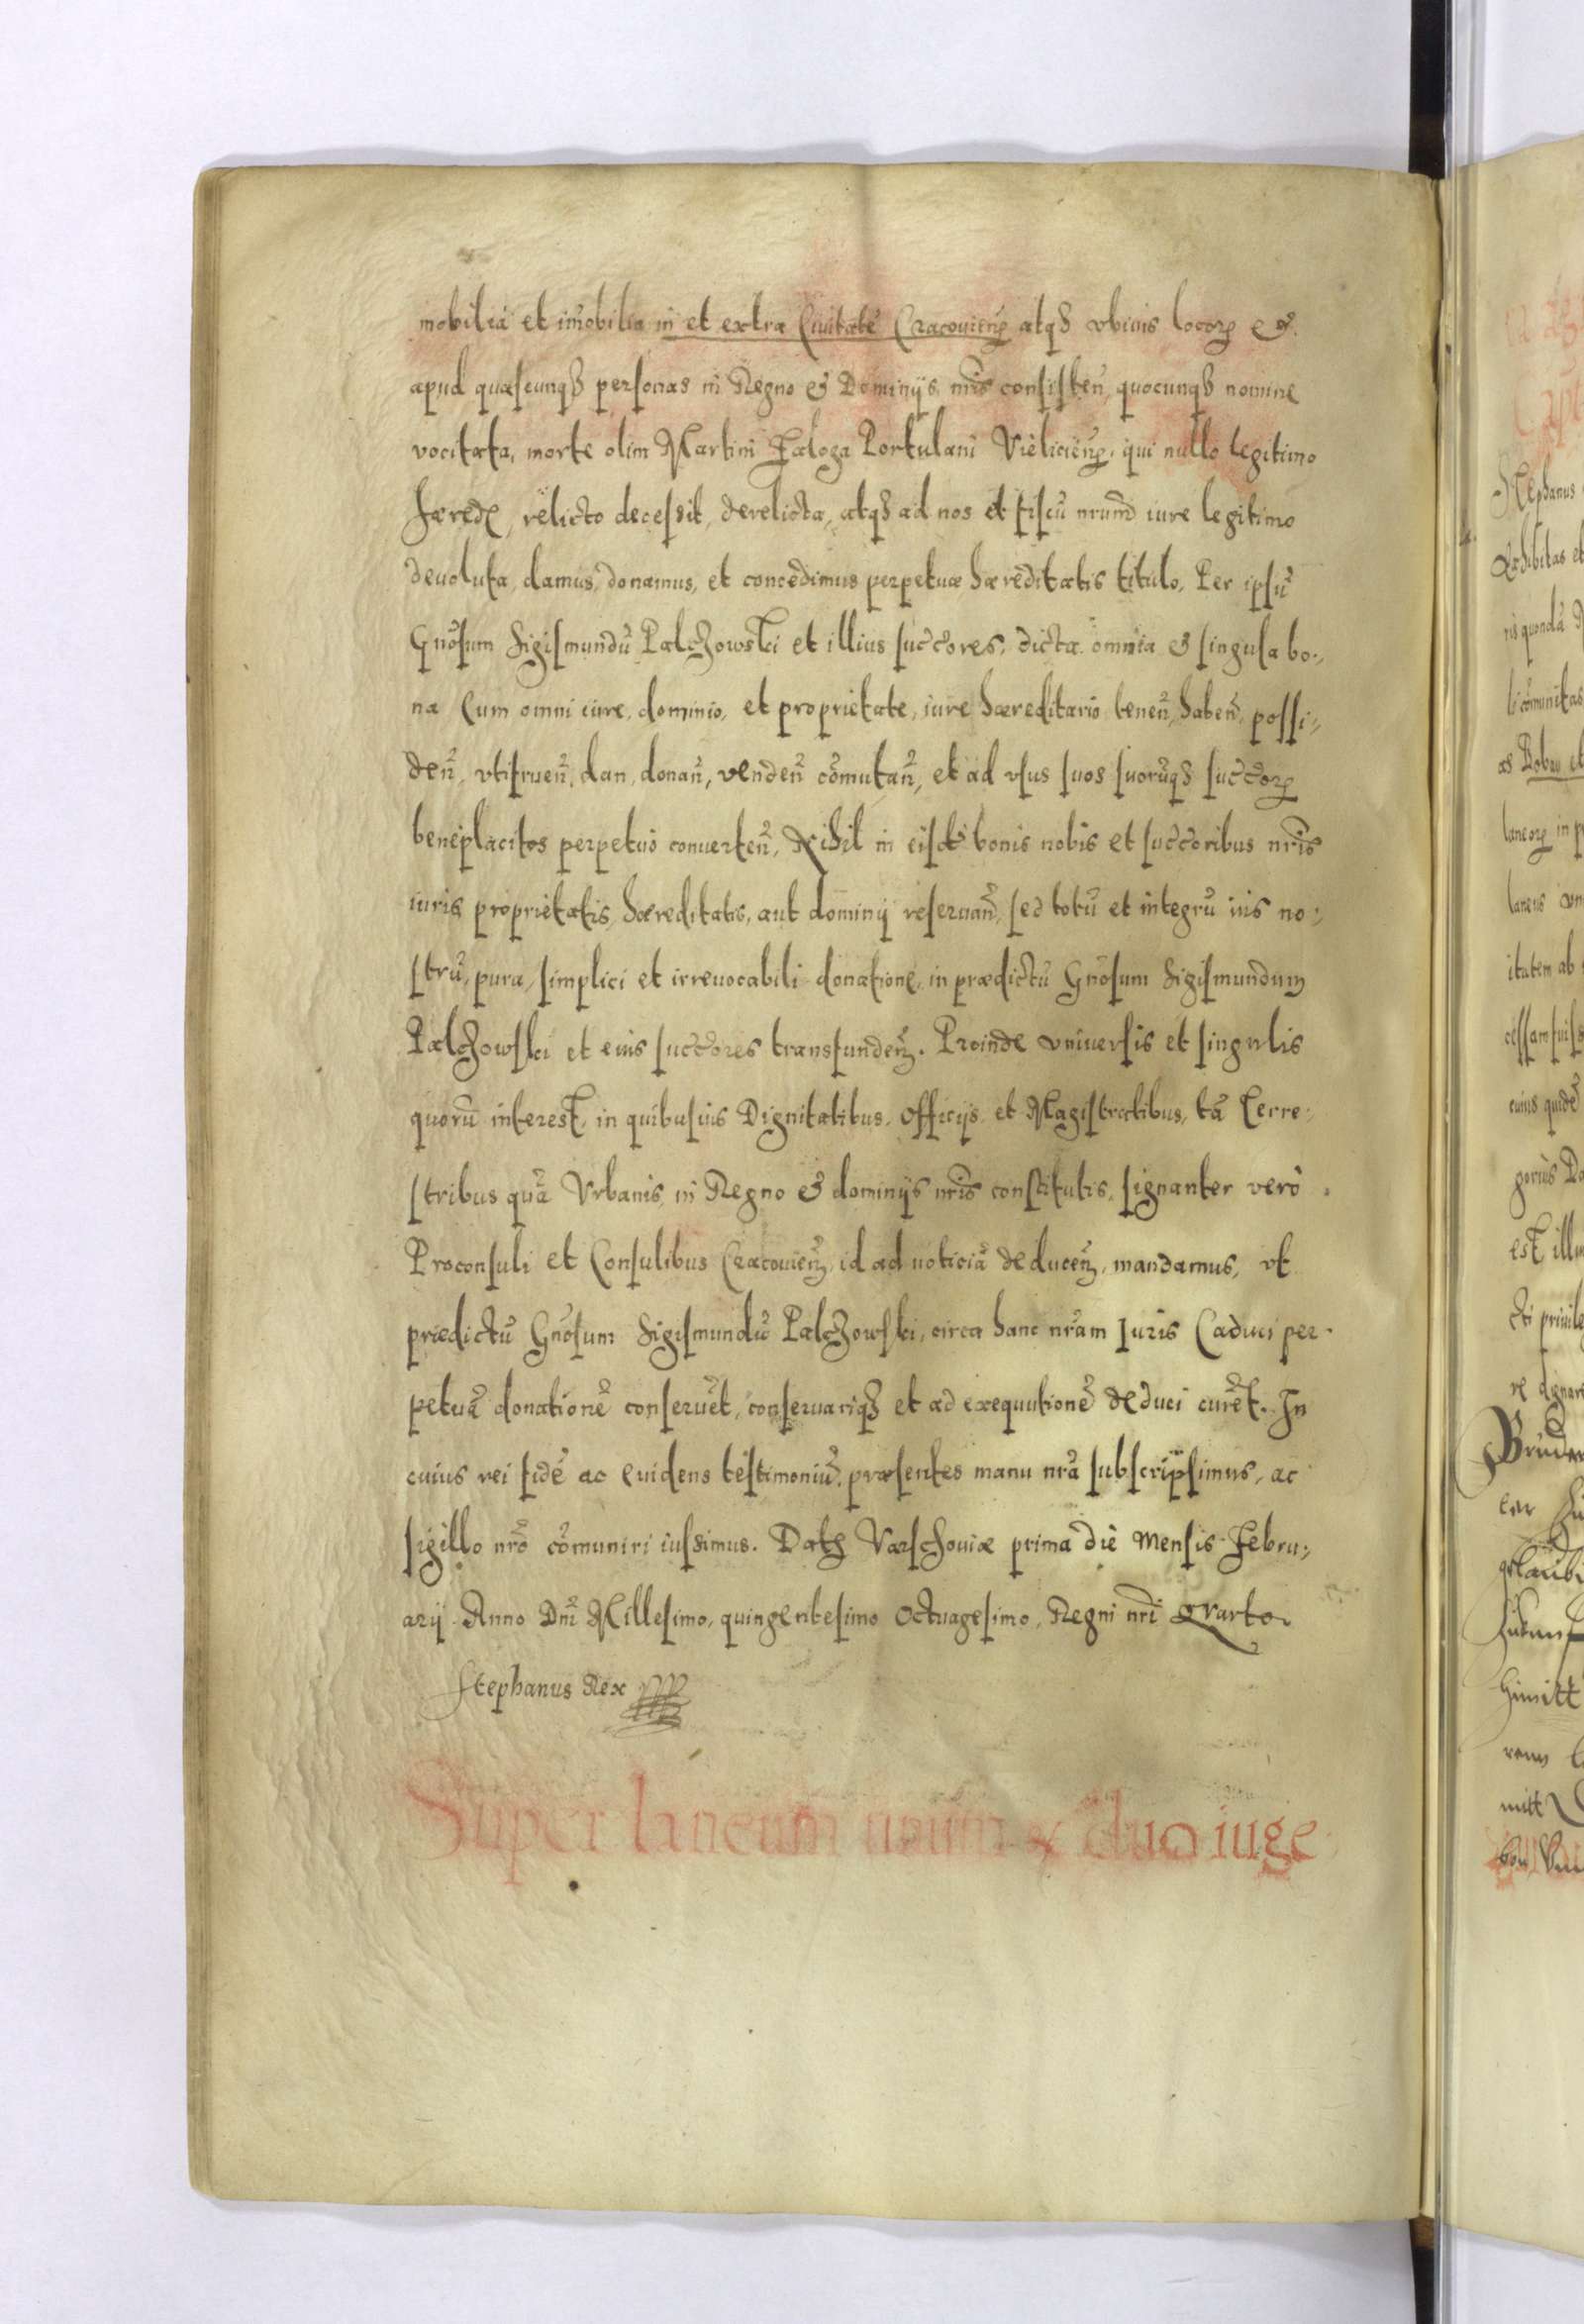 mobilia et im̃obilia in et extra Ciuitatẽ Cracouieñ atq₃ vbiuis locoꝝ et
apud quascunq₃ personas in Regno et Dominijs nr̃is consisteñ quocunq₃ nomine
vocitata, morte olim Martini Paloga Portulani Vielicieñ, qui nullo legitimo
hærede, relicto decessit, derelicta, atq₃ ad nos et fiscũ nrum̃ iure legitimo
deuoluta, damus, donamus, et concedimus perpetuæ hæreditatis titulo, Per ipsũ
Gñosum Sigismundũ Palczowski et illius succ̃ores, dicta omnia et singula bo:,
na Cum omni iure, dominio, et proprietate, iure hæreditario teneñ, habeñ, possi:,
deñ, vtifrueñ, dan, donañ, vendeñ com̃utañ, et ad vsus suos suorũq₃ succ̃oꝝ
beneplacitos perpetuo conuerteñ, Nihil in eisdẽ bonis nobis et succ̃oribus nr̃is
iuris proprietatis, hæreditatis, aut dominij reseruañ, sed totũ et integrũ ius no:,
strũ, pura, simplici et irreuocabili donatione, in prædictũ Gñosum Sigismundum
Palczowski et eius succ̃ores transfundeñ. Proinde vniuersis et singulis
quorũ interest, in quibusuis Dignitatibus, Officijs et Magistratibus, tã Terre:
stribus quã Vrbanis, in Regno et dominijs nr̃is constitutis, signanter verò
Proconsuli et Consulibus Cracouieñ, id ad noticiã deduceñ, mandamus, vt
prædictũ Gñosum Sigismundũ Palczowski, circa hanc nr̃am Iuris Caduci per-
petuã donationẽ conseruẽt, conseruariq₃ et ad exequutionẽ deduci curẽt. In
cuius rei fidẽ ac euidens testimoniũ, præsentes manu nr̃a subscripsimus, ac
sigillo nr̃o com̃uniri iussimus. Dat₃ Varschouiæ prima die Mensis Febru:,
arij Anno Dñi Millesimo, quingentesimo Octuagesimo, Regni nr̃i Quarto
Stephanus Rex
Super laneum unum & duo iuge